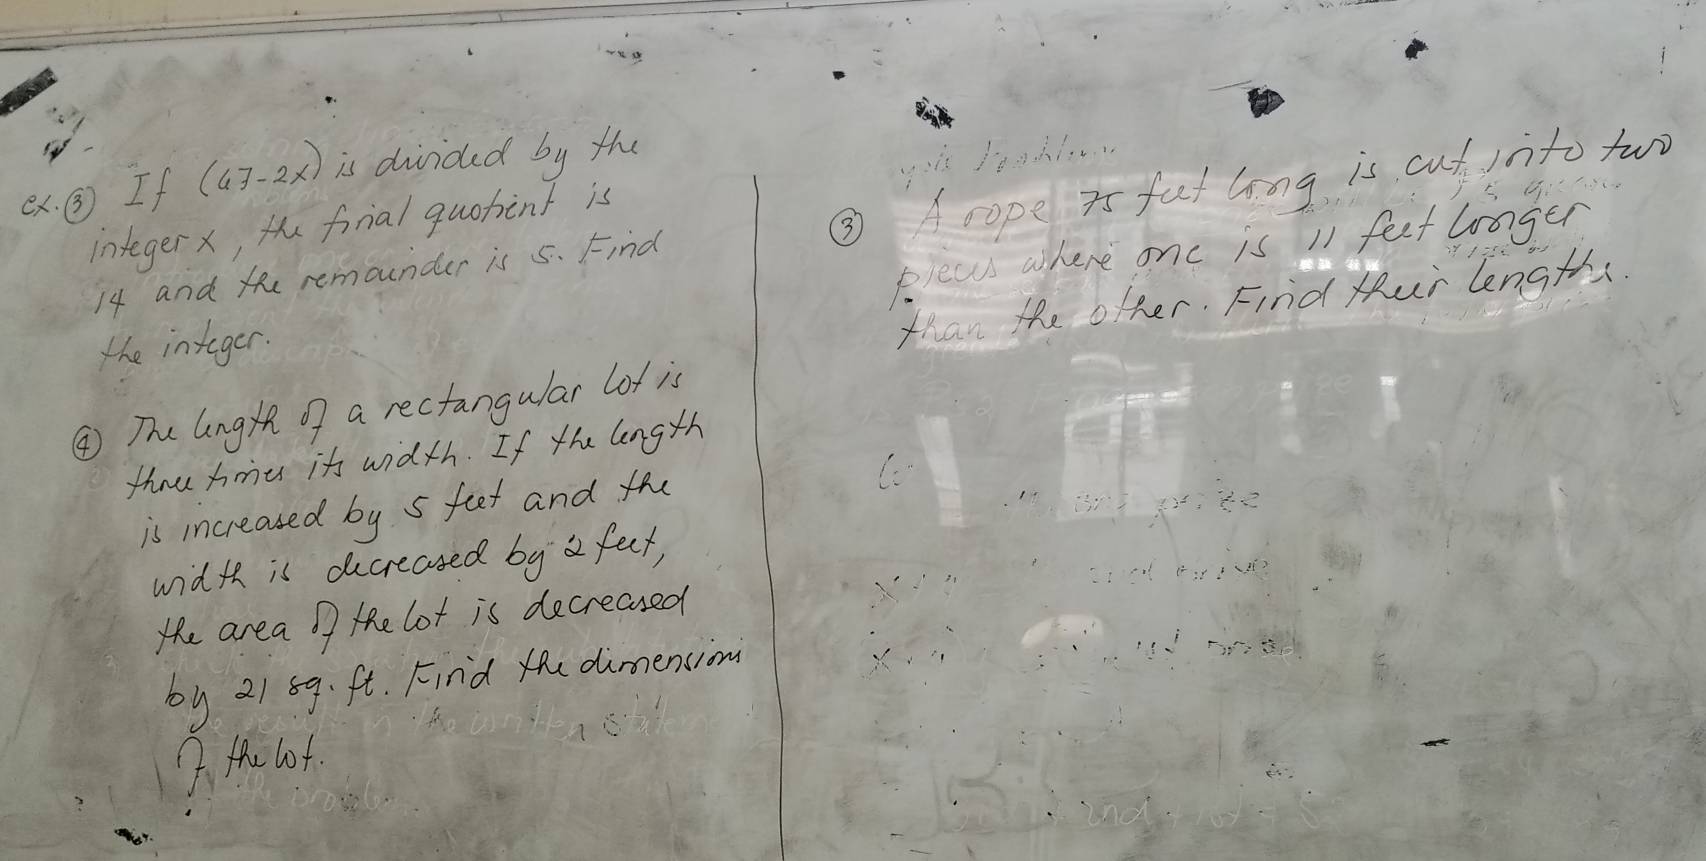 ex. ③ If (67-2x) is divided by the
integer x, the final quotient is
14 and the remainder is 5. Find
the integer.
④ The length of a rectangular lot is
three times its width. If the length
is increased by 5 feet and the
width is decreased by 2 feet,
the area of the lot is decreased
by 21 sq. ft. Find the dimensions
of the lot.
③ A rope 75 feet long is cut into two
pieces where one is 11 feet longer
than the other. Find their lengths.